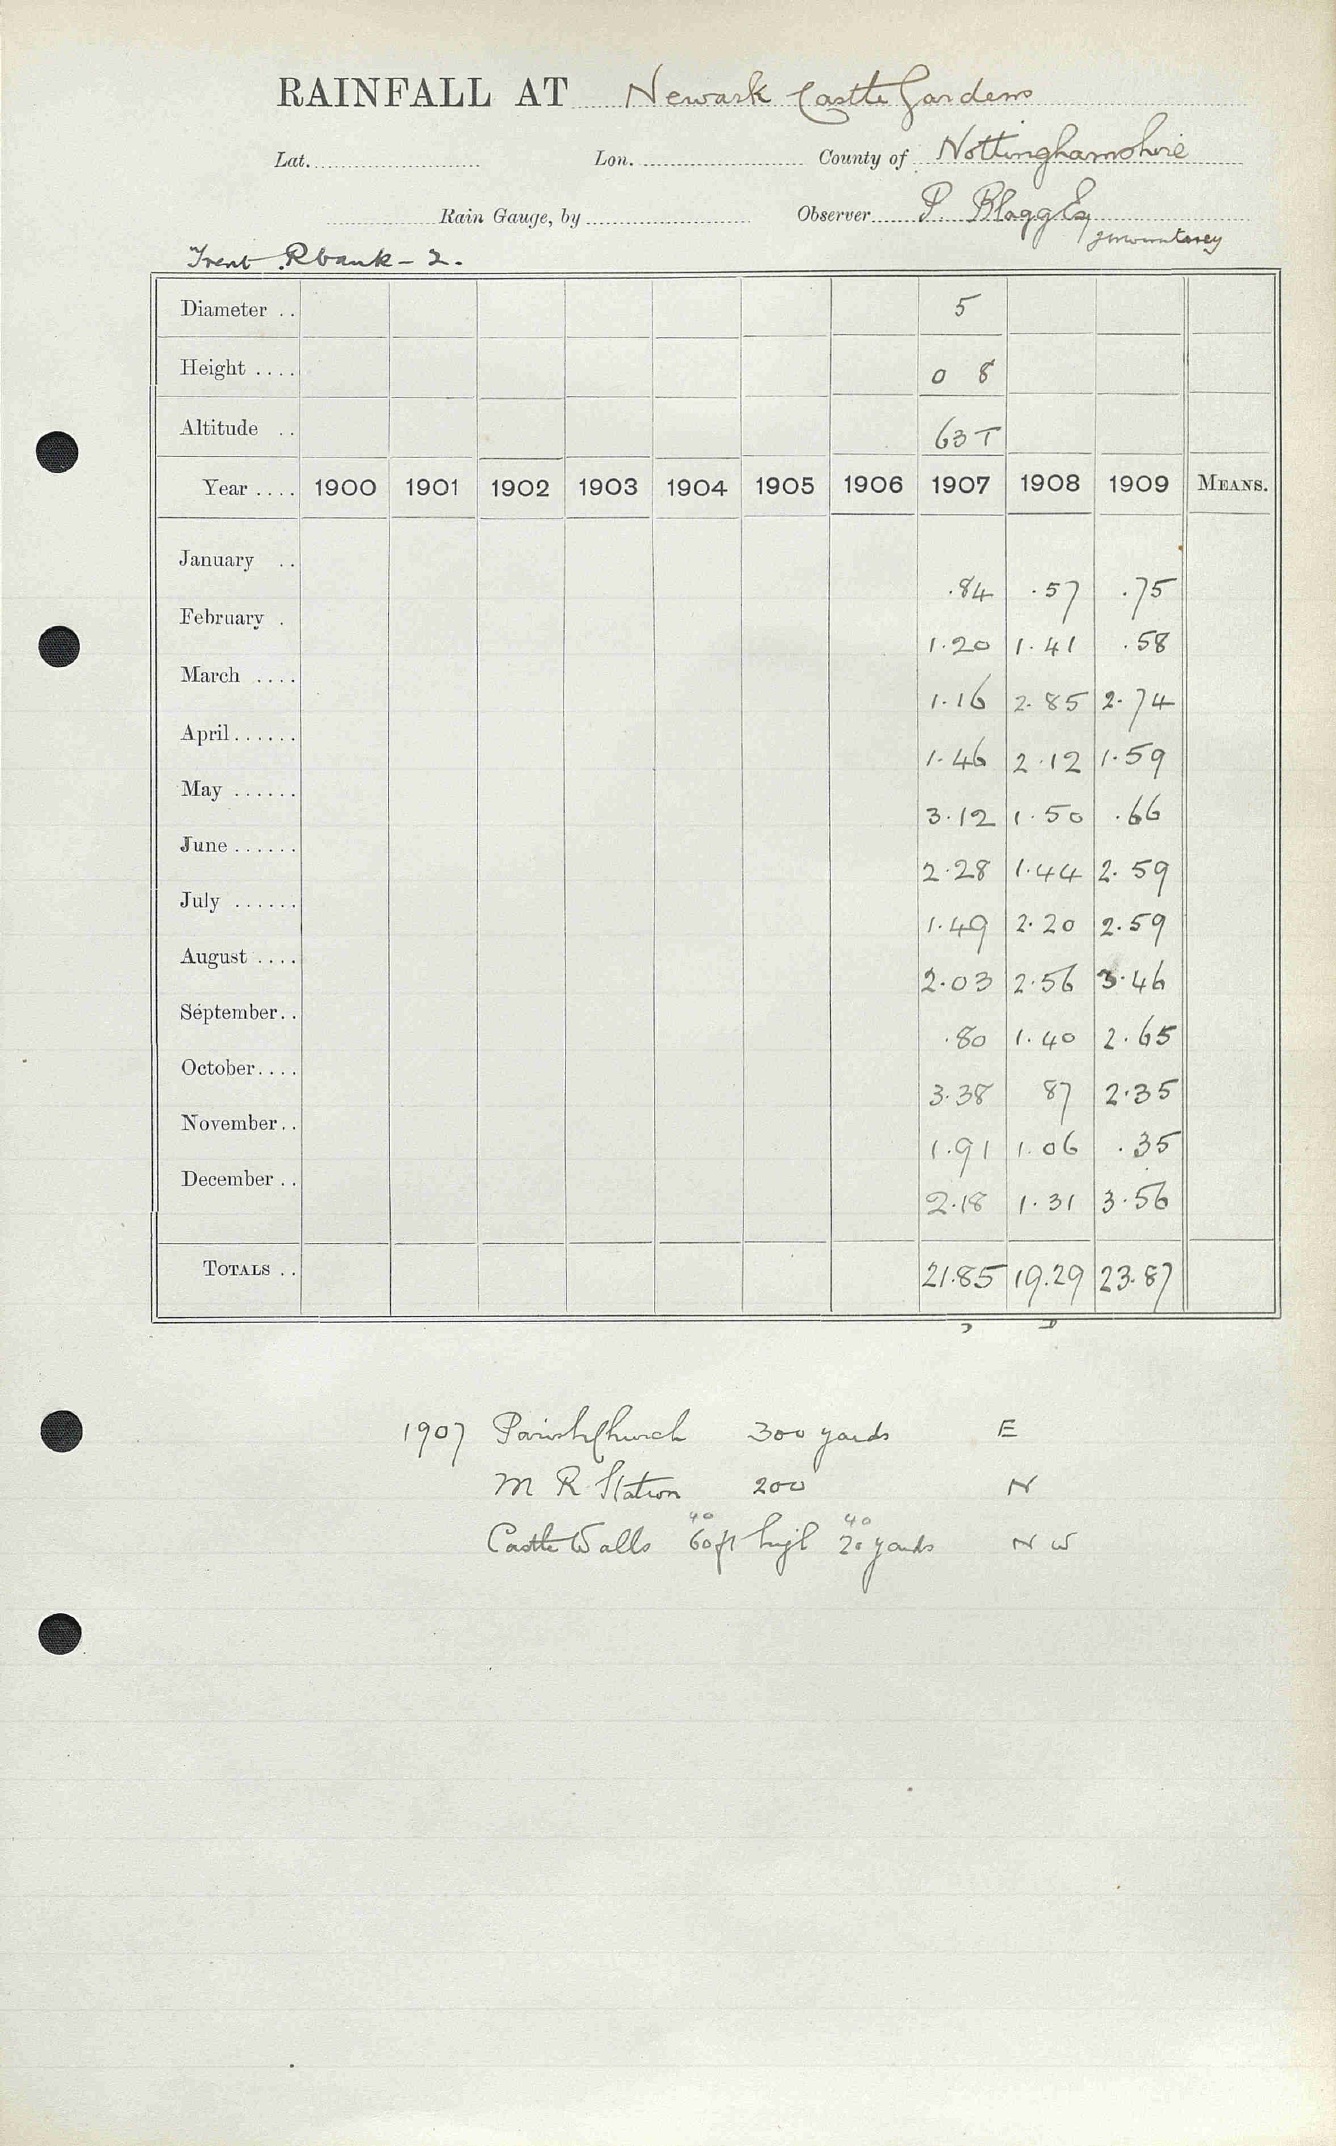 RAINFALL AT Newark Castle Gardens
Lat. Lon. County of Nottinghamshire
Rain Gauge, by Observer P. Blagg Esq
Trent Rbank - 2.
Diameter .. 5
Height .... 0 8
Altitude .. 63 T
Year .... 1900 1901 1902 1903 1904 1905 1906 1907 1908 1909 MEANS.
January .. .84 .57 .75
February . 1.20 1.41 .58
March .... 1.16 2.85 2.74
April ...... 1.46 2.12 1.59
May ...... 3.12 1.50 .66
June ...... 2.28 1.44 2.59
July ...... 1.49 2.20 2.59
August .... 2.03 2.56 3.46
September.. .80 1.40 2.65
October.... 3.38 87 2.35
November.. 1.91 1.06 .35
December .. 2.18 1.31 3.56
TOTALS .. 21.85 19.29 23.87
1907 Parish Church 300 yards E
M R Station 200 N
40 40
Castle Walls 60 ft high 20 yards N W